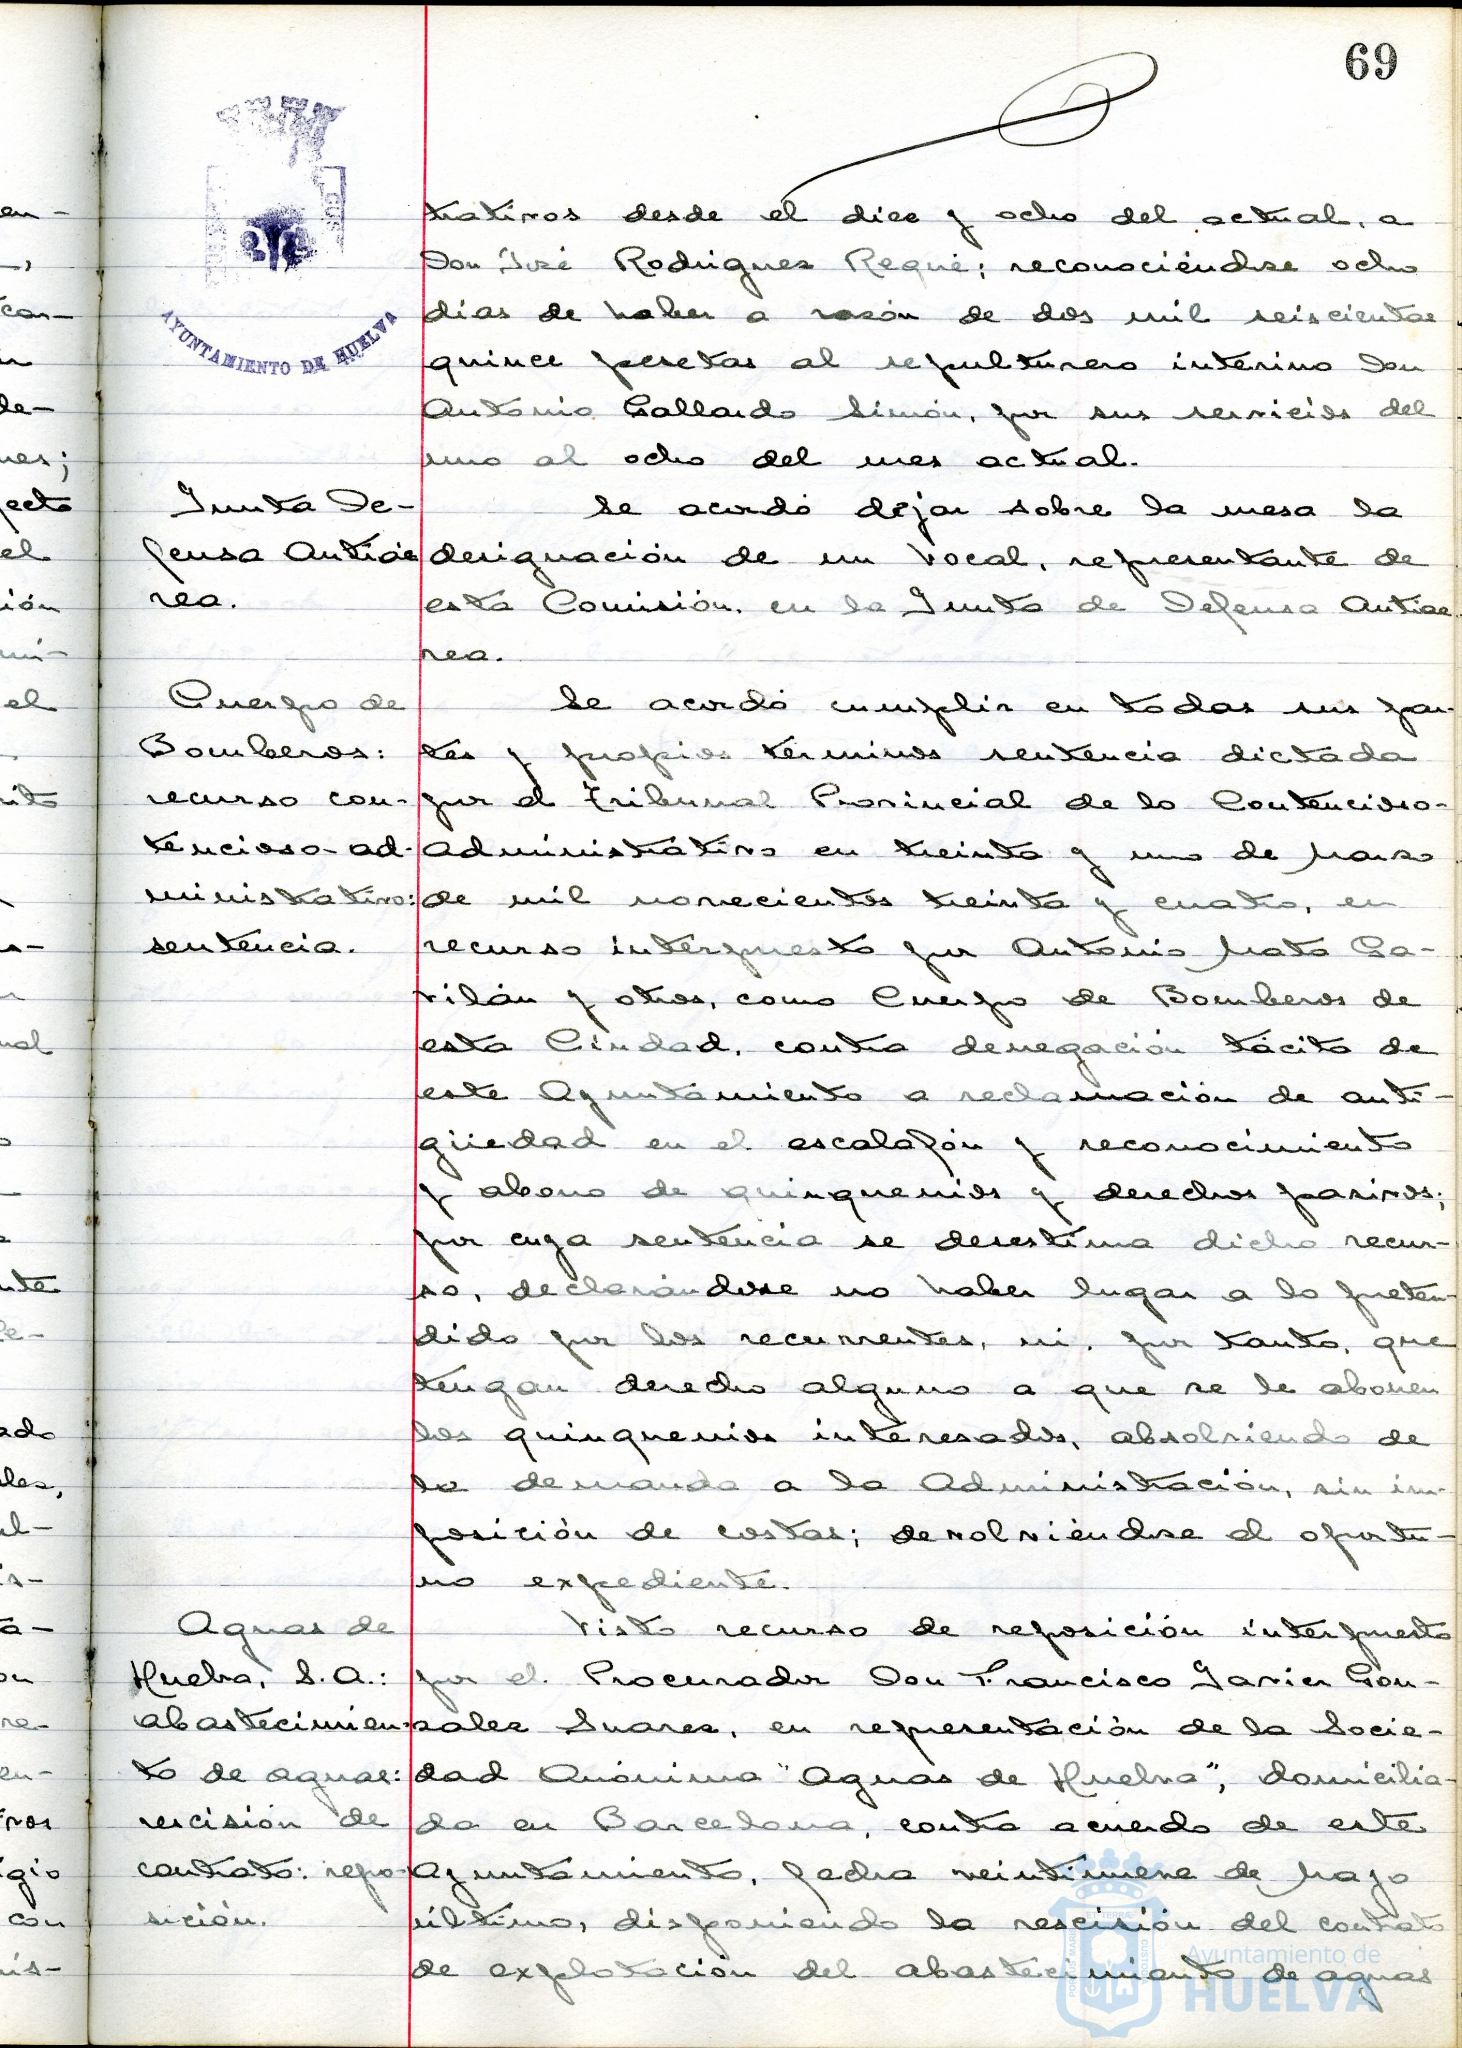 69
AYUNTAMIENTO DE HUELVA
trativos desde el diez y ocho del actual, a
Don José Rodríguez Requé; reconociéndose ocho
días de haber a razón de dos mil seiscientas
quince pesetas al sepulturero interino Don
Antonio Gallardo Simón, por sus servicios del
uno al ocho del mes actual.
Junta De-
fensa Antiáe
rea.
Se acordó dejar sobre la mesa la
designación de un Vocal, representante de
esta Comisión, en la Junta de Defensa Antiae
rea.
Cuerpo de
Bomberos:
recurso con-
tencioso-ad-
ministrativo:
sentencia.
Se acordó cumplir en todas sus par-
tes y propios términos sentencia dictada
por el Tribunal Provincial de lo Contencioso-
administrativo en treinta y uno de Marzo
de mil novecientos treinta y cuatro, en
recurso interpuesto por Antonio Mato Ga-
vilán y otros, como Cuerpo de Bomberos de
esta Ciudad, contra denegación tácita de
este Ayuntamiento a reclamación de anti-
güedad en el escalafón y reconocimiento
y abono de quinquenios y derechos pasivos;
por cuya sentencia se desestima dicho recur-
so, declarándose no haber lugar a lo preten-
dido por los recurrentes, ni, por tanto, que
tengan derecho alguno a que se le abonen
los quinquenios interesados, absolviendo de
la demanda a la Administración, sin im-
posición de costas; devolviéndose el oportu-
no expediente.
Aguas de
Huelva, S.A.:
abastecimien-
to de aguas:
rescisión de
contrato: repo-
sición.
Visto recurso de reposición interpuesto
por el Procurador Don Francisco Javier Gon-
zalez Suarez, en representación de la Socie-
dad Anónima "Aguas de Huelva", domicilia-
da en Barcelona, contra acuerdo de este
Ayuntamiento, fecha veintinueve de Mayo
último, disponiendo la rescisión del contrato
de explotación del abastecimiento de aguas
Ayuntamiento de
HUELVA